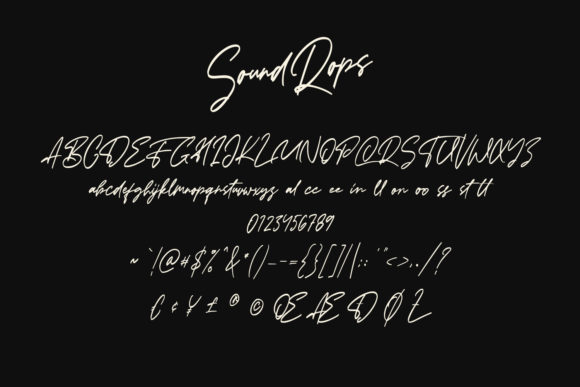 Sound Rops
ABCDEFGHIJKLMNOPQRSTUVWXYZ
abcdefghijklmnopqrstuvwxyz al cc ee in ll on oo ss st tt
0123456789
~`!@#$%^&*()_-={}[]|\:;'"<>,./?
€ ¢ ¥ £ ® © Œ Æ Đ Ø Ł